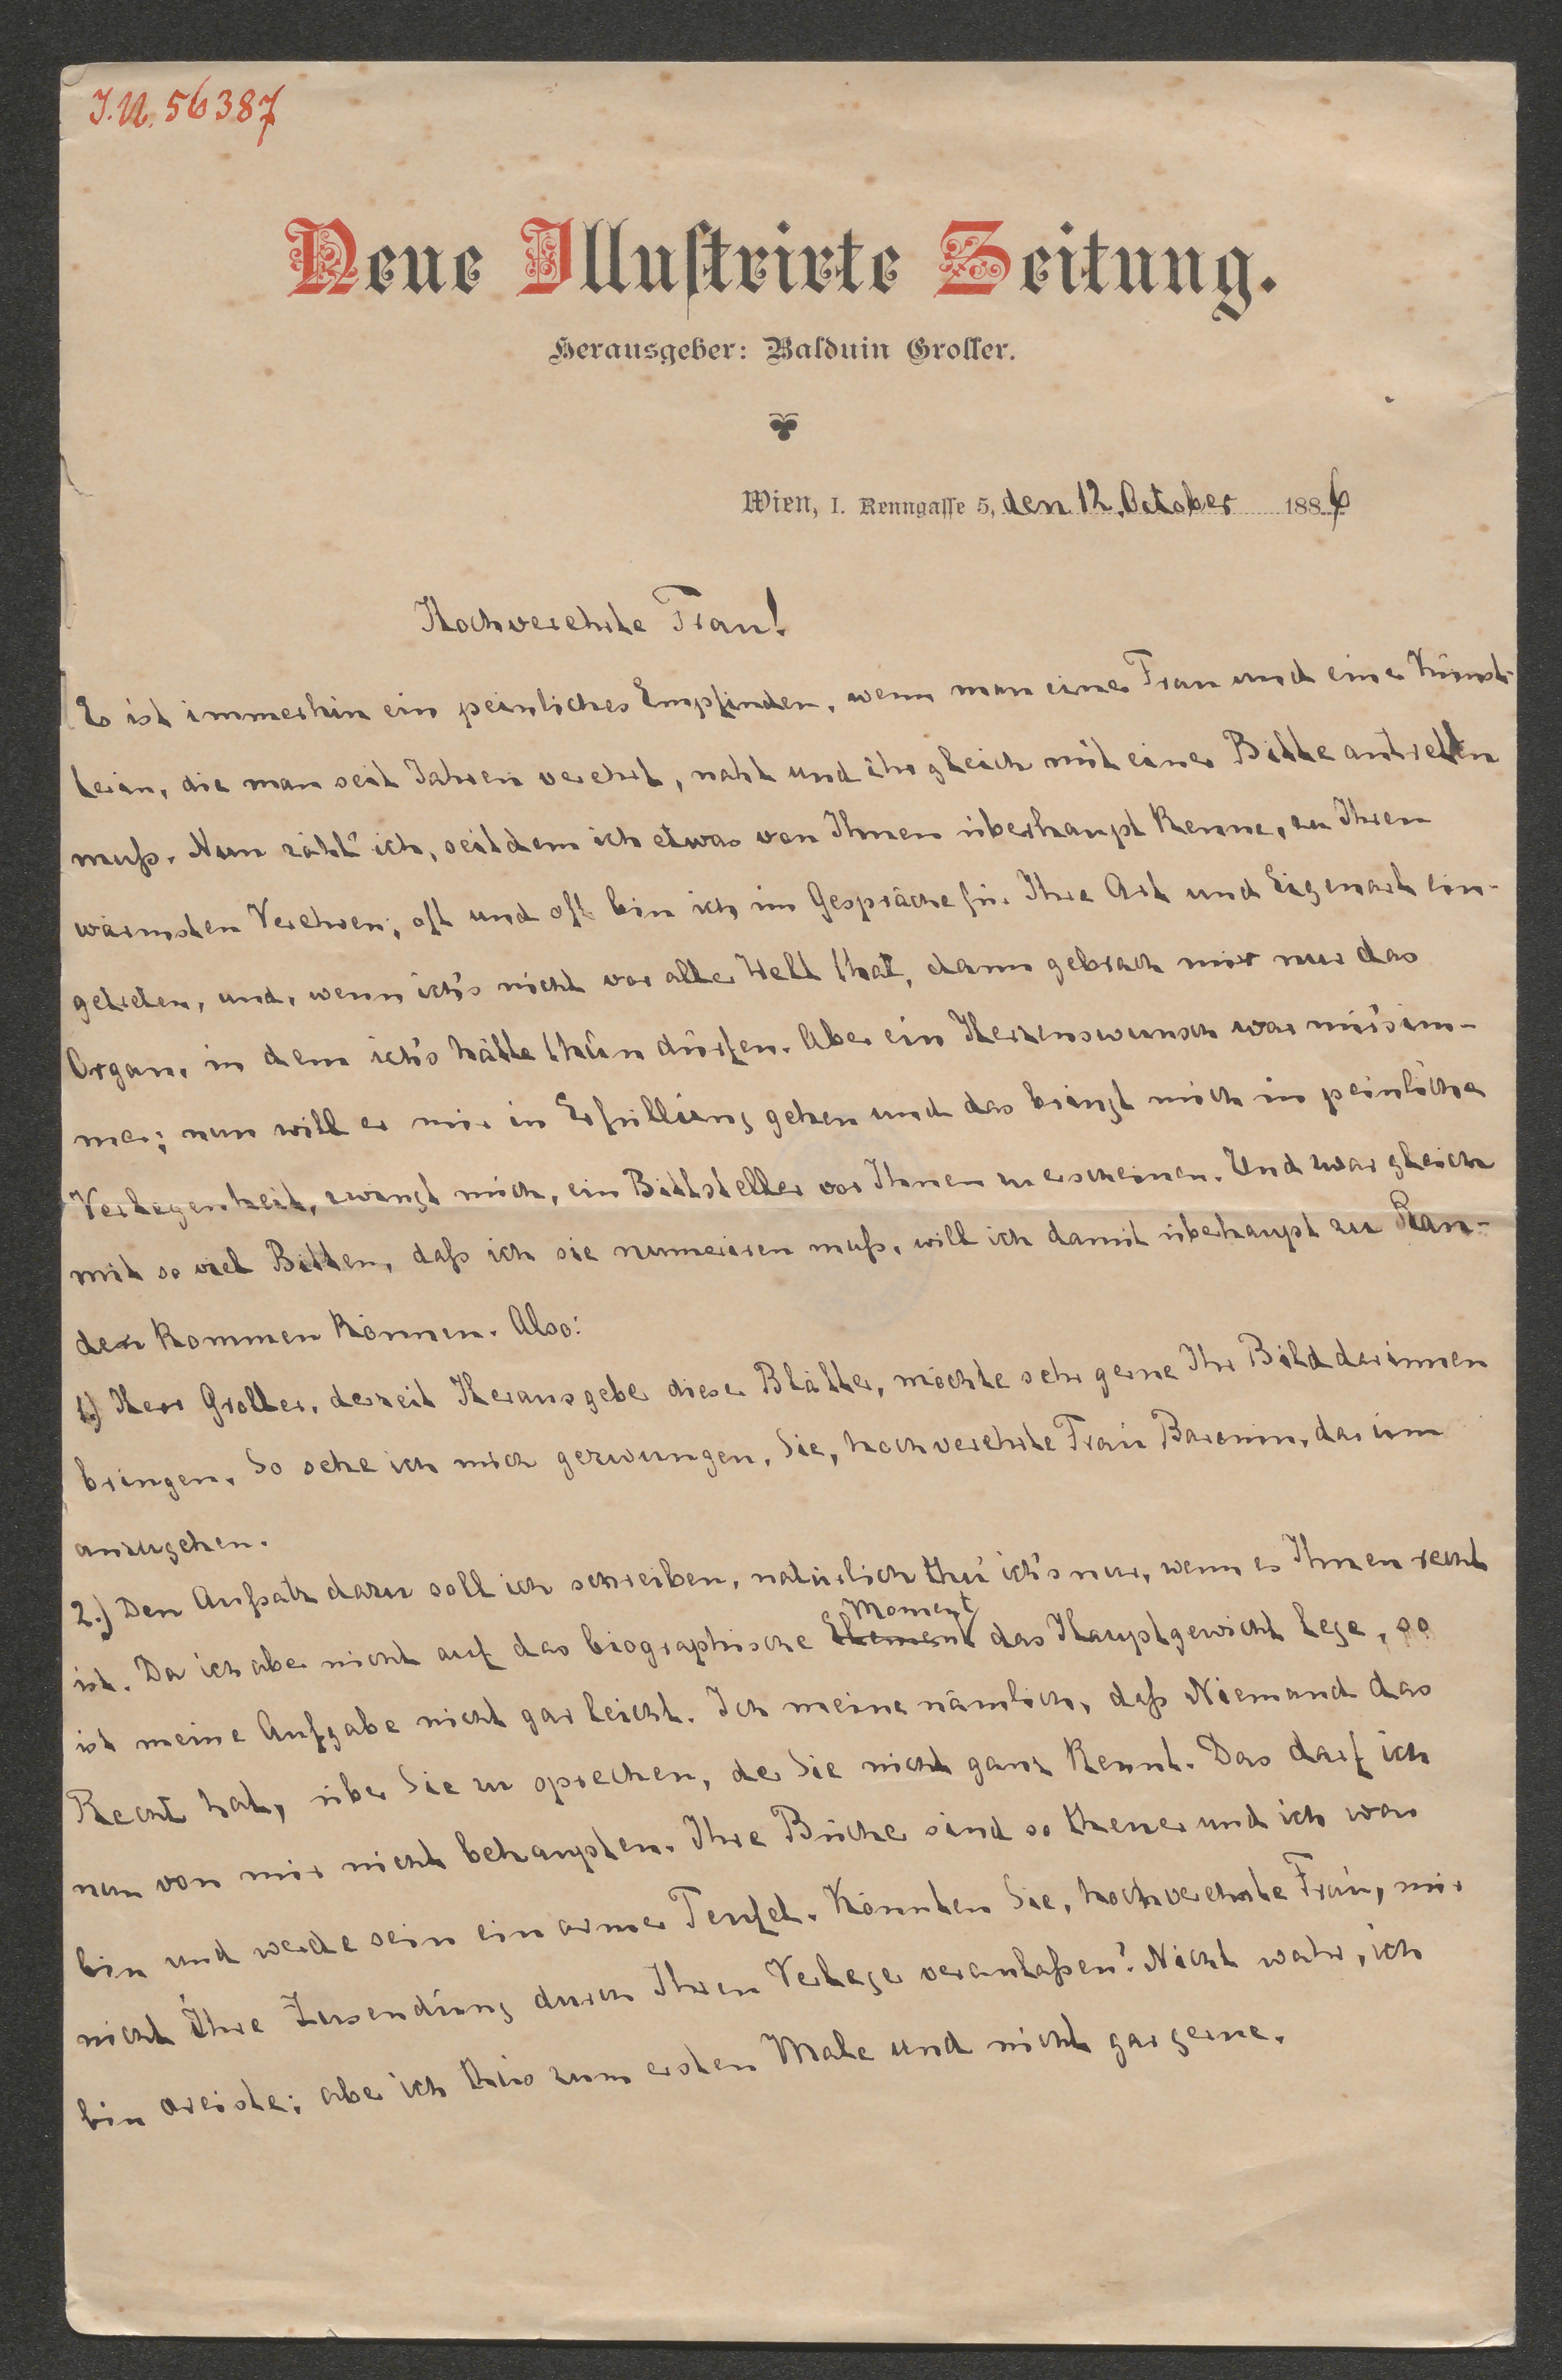 J.N. 56387
Neue Illustrirte Zeitung.
Herausgeber: Balduin Groller.
Wien, I. Renngasse 5, den 12. October 1886
Hochverehrte Frau!
Es ist immerhin ein peinliches Empfinden, wenn man einer Frau und einer Künst-
lerin, die man seit Jahren verehrt, naht und ihr gleich mit einer Bitte antreten
muß. Nun zähl' ich, seitdem ich etwas von Ihnen überhaupt kenne, zu Ihren
wärmsten Verehrern; oft und oft bin ich im Gespräche für Ihre Art und Eigenart ein-
getreten, und, wenn ich's nicht vor aller Welt that, dann gebrach mir nur das
Organ, in dem ich's hätte thun dürfen. Aber ein Herzenswunsch war mir's im-
mer; nun will er mir in Erfüllung gehen und das bringt mich in peinliche
Verlegenheit, zwingt mich, ein Bittsteller vor Ihnen zu erscheinen. Und zwar gleich
mit so viel Bitten, daß ich sie numeriren muß, will ich damit überhaupt zu Ran-
den kommen können. Also:
1.) Herr Groller, derzeit Herausgeber dieser Blätter, möchte sehr gerne Ihr Bild darinnen
bringen. So sehe ich mich gezwungen, Sie, hochverehrte Frau Baronin, darum
anzugehen.
2.) Den Aufsatz dazu soll ich schreiben, natürlich thu' ich's nur, wenn es Ihnen recht
ist. Da ich aber nicht auf das biographische Element Moment das Hauptgewicht lege, so
ist meine Aufgabe nicht gar leicht. Ich meine nämlich, daß Niemand das
Recht hat, über Sie zu sprechen, der Sie nicht ganz kennt. Das darf ich
nun von mir nicht behaupten. Ihre Bücher sind so theuer und ich war
bin und werde sein ein armer Teufel. Könnten Sie, hochverehrte Frau, mir
nicht Ihre Zusendung durch Ihren Verleger veranlaßen? Nicht wahr, ich
bin dreiste; aber ich thu's zum ersten Male und nicht gar gerne.